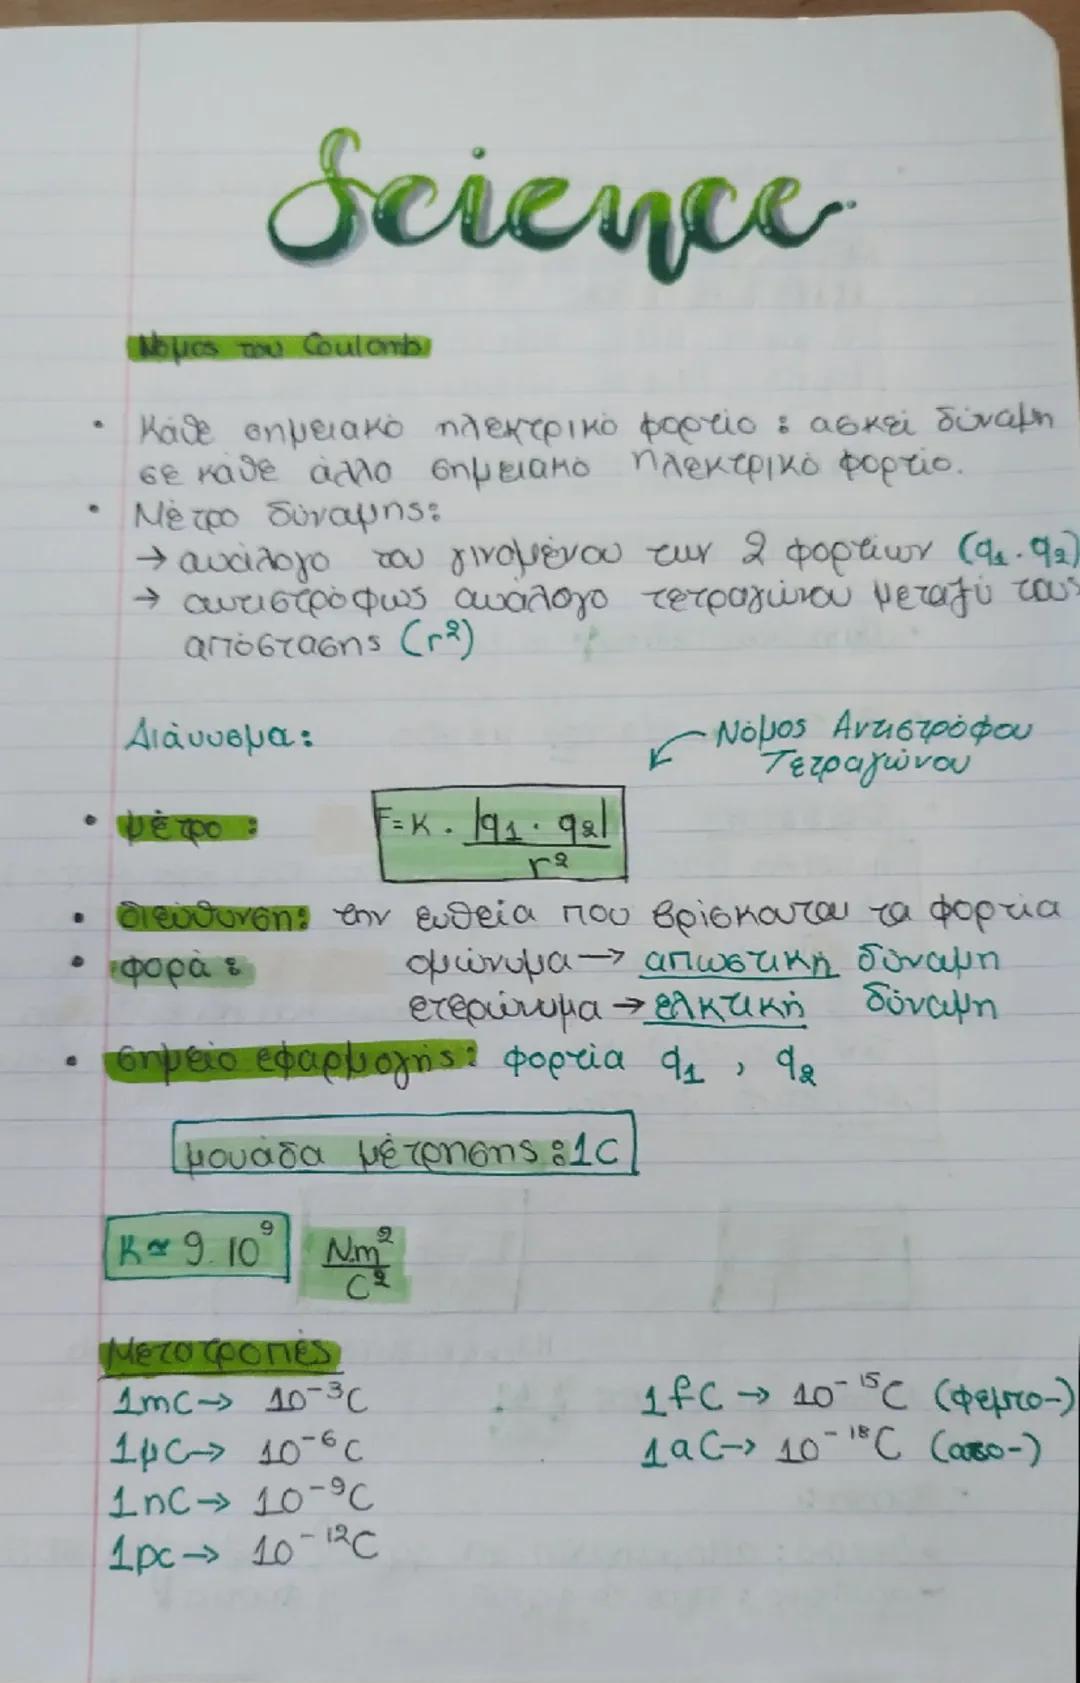 Science
Νόμος του Coulomb
• Κάθε σημειακό ηλεκτρικό φορτίο : ασκεί δύναμη
σε κάθε άλλο σημειακό ηλεκτρικό φορτίο.
• Μέτρο δύναμης:
→ ανάλογο του γινομένου των 2 φορτίων (q₁ · q₂)
→ αντιστρόφως ανάλογο τετραγώνου μεταξύ τους
απόστασης (r²)
Διάνυσμα:
Νόμος Αντιστρόφου
Τετραγώνου
• μέτρο : F = K · |q₁ · q₂| / r²
• διεύθυνση: την ευθεία που βρίσκονται τα φορτία
• φορά : ομώνυμα → απωστική δύναμη
ετερώνυμα → ελκτική δύναμη
• σημείο εφαρμογής: φορτία q₁ , q₂
μονάδα μέτρησης : 1C
K ≃ 9.10⁹ N.m²/C²
Μετατροπές
1mC → 10⁻³C 1fC → 10⁻¹⁵C (φέμτο-)
1μC → 10⁻⁶C 1aC → 10⁻¹⁸C (ατο-)
1nC → 10⁻⁹C
1pc → 10⁻¹²C